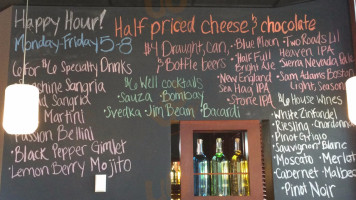 Happy Hour!
Monday-Friday 5-8
Half priced cheese & chocolate
$6 for Specialty Drinks
Sangria
Sangria
Martini
Passion Bellini
Black Pepper Gimlet
Lemon Berry Mojito
$4 Draught, Can,
& Bottle beers
Blue Moon
Half Full
Bright Ale
New England
Sea Hag IPA
Stone IPA
Two Roads Lil
Heaven IPA
Sierra Nevada Pale
Sam Adams Boston
Light, Seasonal
$6 Well cocktails
Sauza Bombay
Svedka Jim Beam Bacardi
$6 House Wines
White Zinfandel
Riesling Chardonnay
Pinot Grigio
Sauvignon Blanc
Moscato Merlot
Cabernet Malbec
Pinot Noir